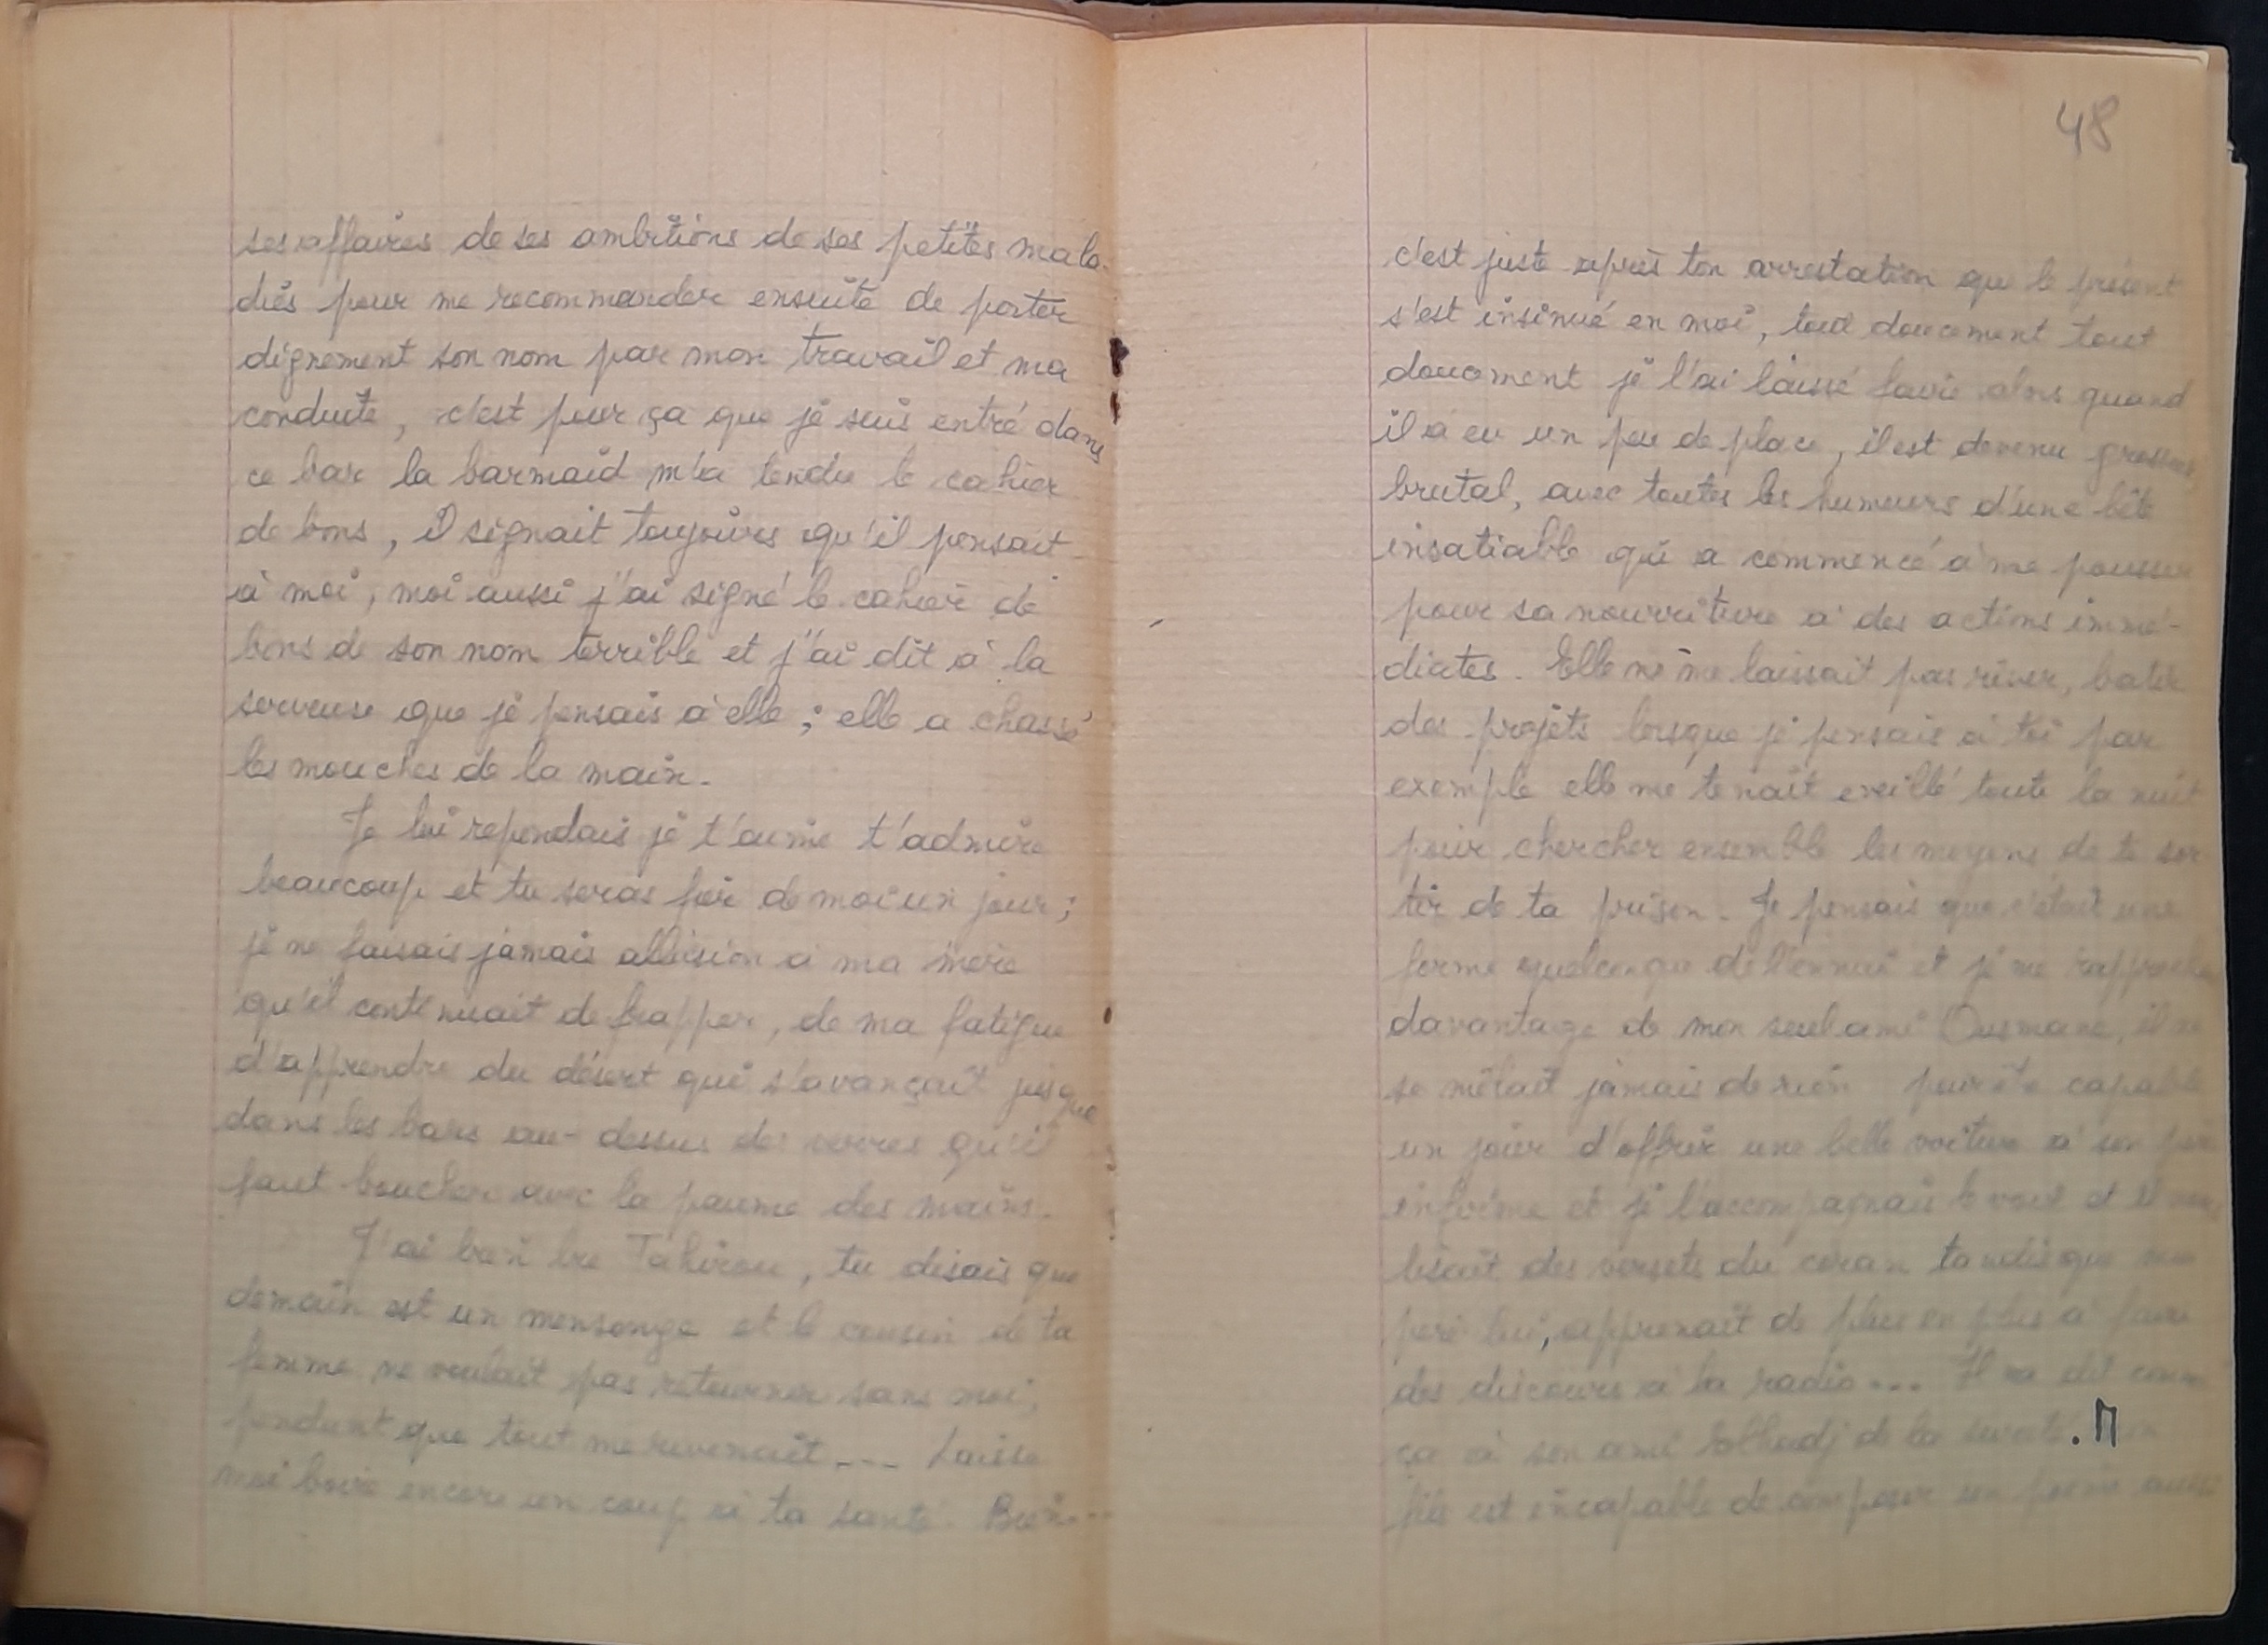 ses affaires de ses ambitions de ses petites mala-
dies pour me recommander ensuite de porter
dignement son nom par mon travail et ma
conduite, c'est pour ça que je suis entré dans
ce bar la barmaid m'a tendu le cahier
de bons, il signait toujours qu'il pensait
à moi, moi aussi j'ai signé le cahier de
bons de son nom terrible et j'ai dit à la
serveuse que je pensais à elle ; elle a chassé
les mouches de la main.
Je lui repondais je t'aime t'admire
beaucoup et tu seras fier de moi un jour ;
je ne faisais jamais allusion à ma mère
qu'il continuait de frapper, de ma fatigue
d'apprendre du désert qui s'avançait jusque
dans les bars au-dessus des verres qu'il
faut boucher avec la paume des mains.
J'ai bien bu Tahirou, tu disais que
demain est un mensonge et le cousin de ta
femme ne voulait pas retourner sans moi,
pendant que tout me revenait --- Laisse
moi boire encore un coup à ta santé. Bien...
48
c'est juste après ton arrestation que le présent
s'est insinué en moi, tout doucement tout
doucement je l'ai laissé faire alors quand
il a eu un peu de place, il est devenu
brutal, avec toutes les humeurs d'une bête
insatiable qui a commencé à me pousser
pour sa nourriture à des actions immé-
diates. Elle ne me laissait pas rêver, batir
des projets lorsque je pensais à toi par
exemple elle me tenait eveillé toute la nuit
pour chercher ensemble les moyens de te sor
tir de ta prison. Je pensais que c'était une
forme quelconque de l'ennui et je me
davantage de mon seul ami Ousmane, il ne
se mêlait jamais de rien pour être capable
un jour d'offrir une belle voiture à son père
infirme et je l'accompagnais le voir et il nous
lisait des versets du coran tandis que mon
père lui, apprenait de plus en plus à faire
des discours à la radio... Il a dit comme
ça à son ami Elhadj de la sureté. Π
fils est incapable de composer un poème aussi